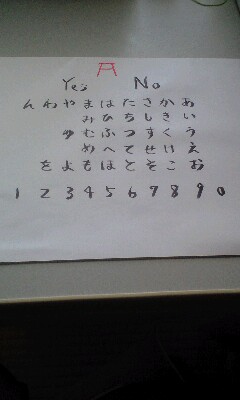 Yes No
ん わ や ま は た さ か あ
み ひ ち し き い
ゆ む ふ つ す く う
め へ て せ け え
を よ も ほ と そ こ お
1 2 3 4 5 6 7 8 9 0